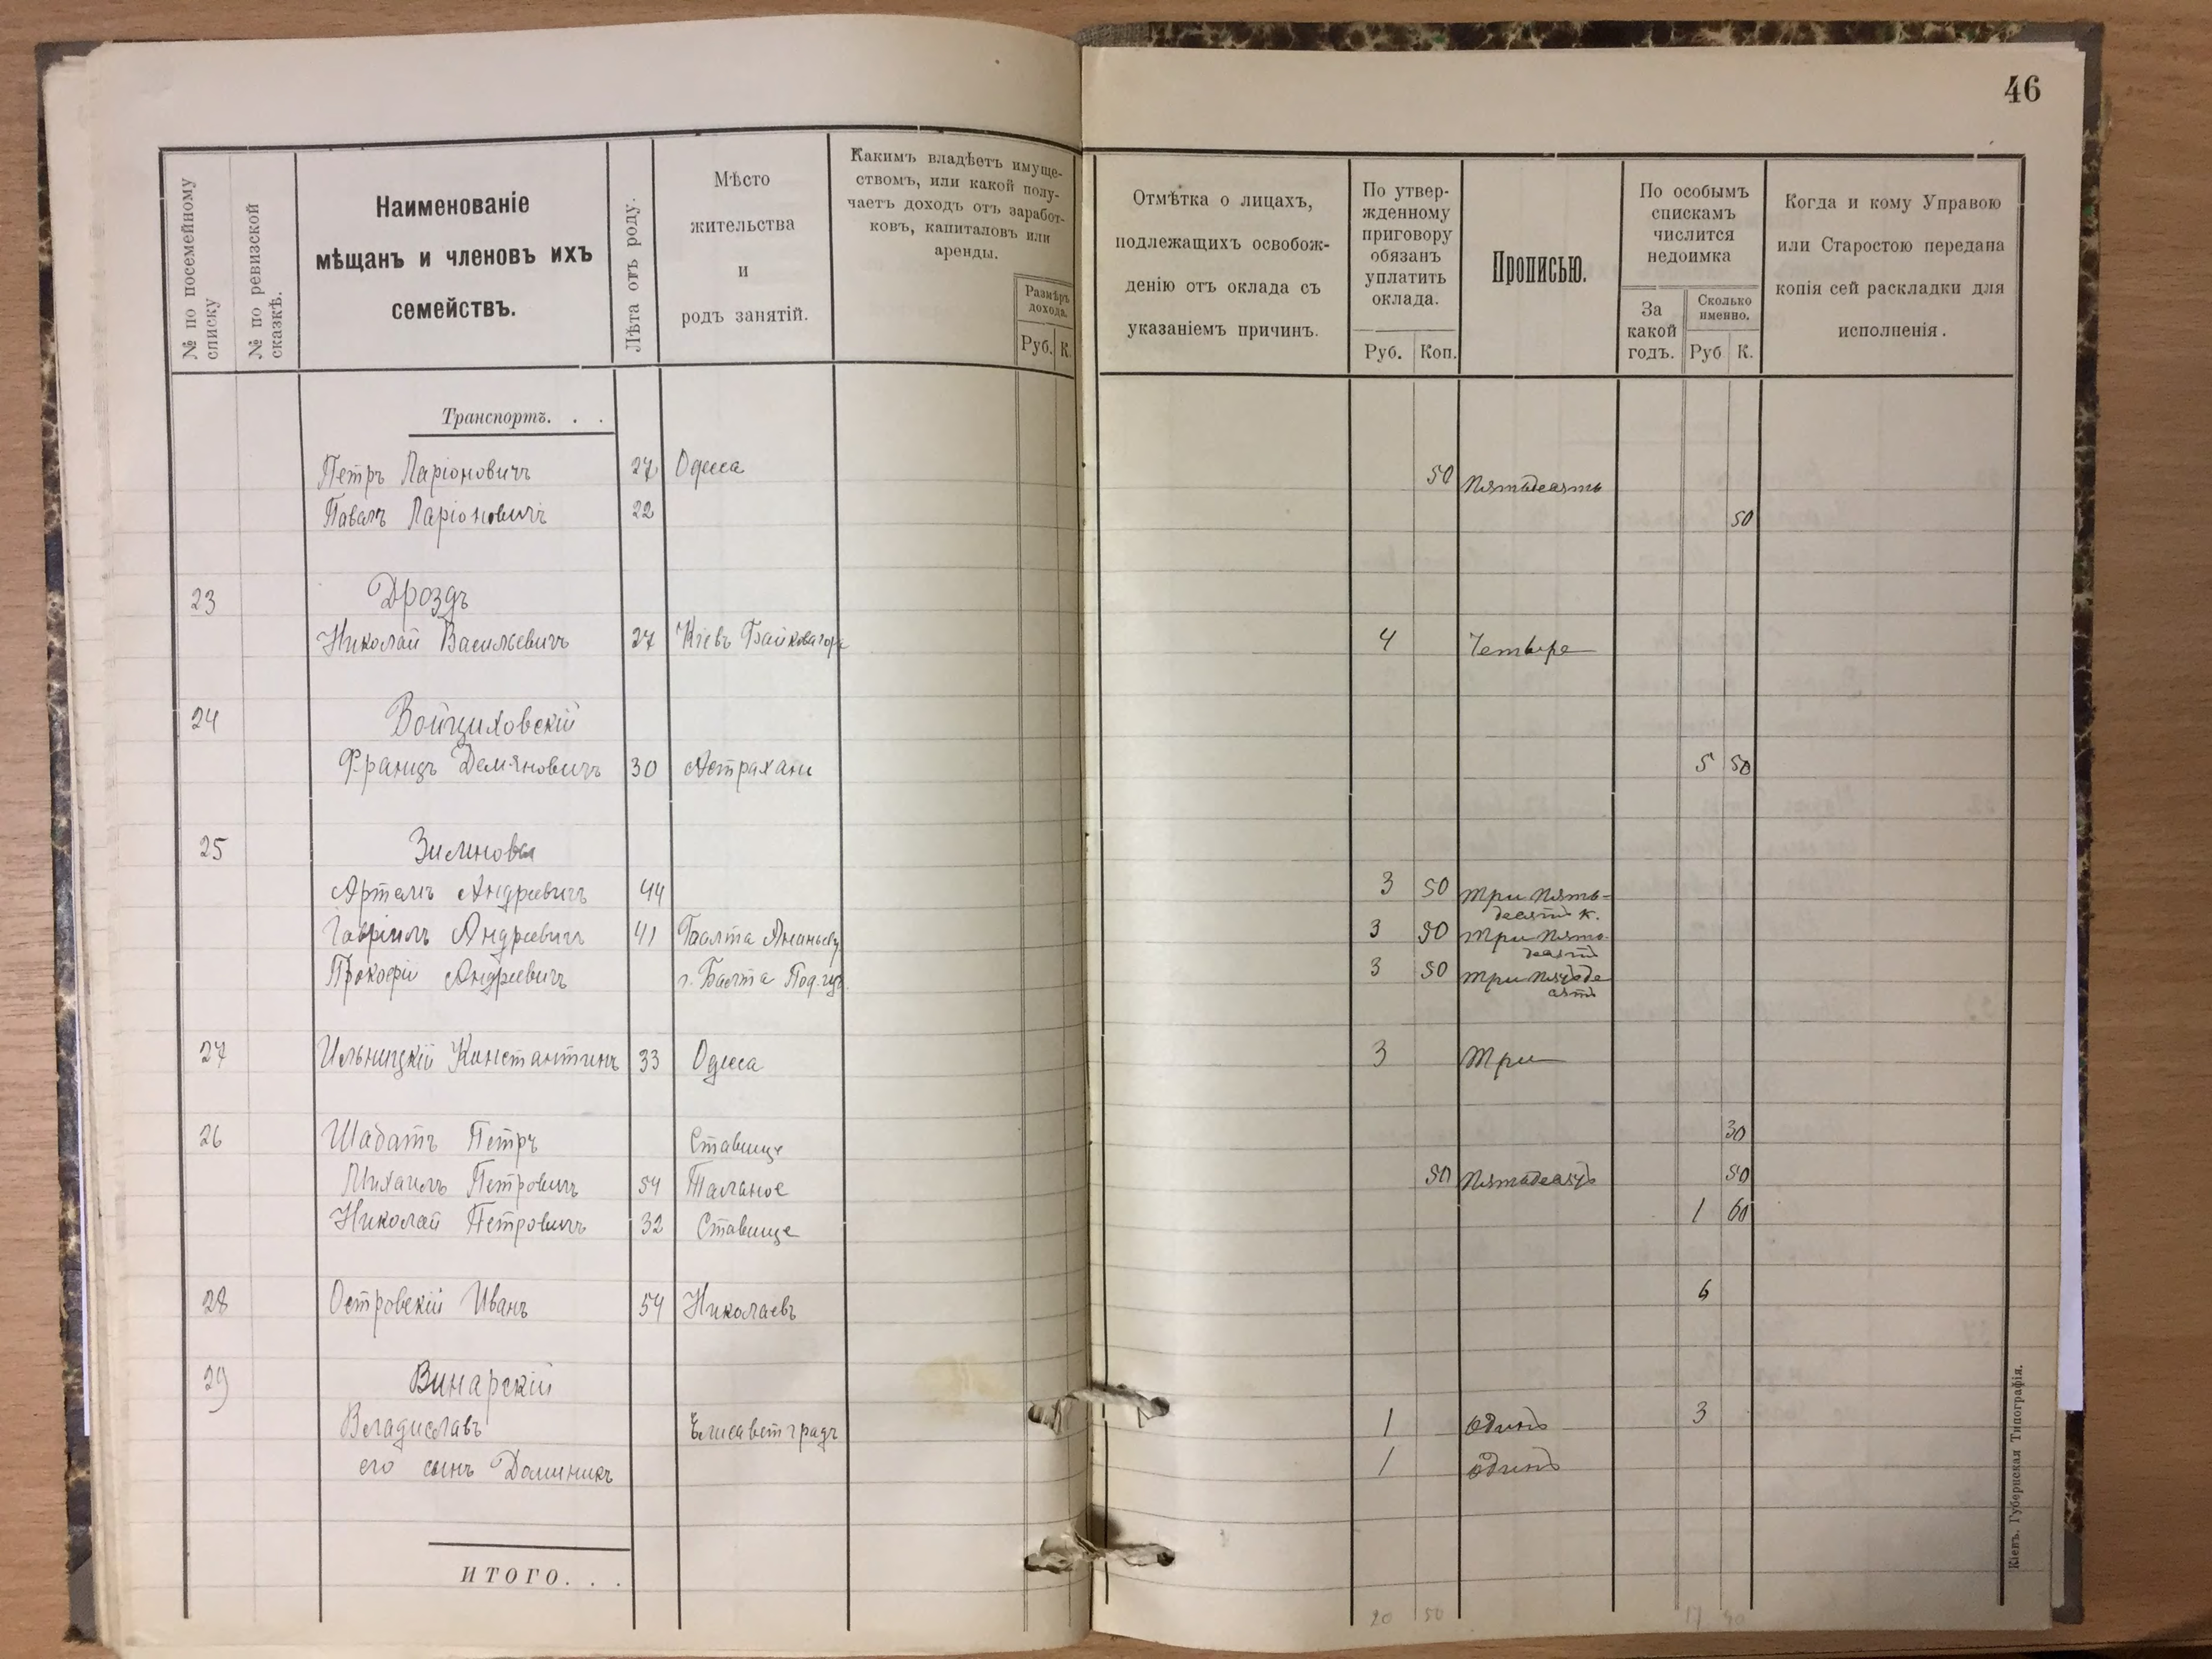 46
№ по посемейному списку
№ по ревизской сказкѣ.
Наименованіе
мѣщанъ и членовъ ихъ
семействъ.
Лѣта отъ роду.
Мѣсто
жительства
и
родъ занятій.
Какимъ владѣетъ имуще-
ствомъ, или какой полу-
чаетъ доходъ отъ заработ-
ковъ, капиталовъ или
аренды.
Размѣръ
дохода.
Руб. К.
Отмѣтка о лицахъ,
подлежащихъ освобож-
денію отъ оклада съ
указаніемъ причинъ.
По утвер-
жденному
приговору
обязанъ
уплатить
оклада.
Руб. Коп.
Прописью.
По особымъ
спискамъ
числится
недоимка
За
какой
годъ.
Сколько
именно.
Руб К.
Когда и кому Управою
или Старостою передана
копія сей раскладки для
исполненія.
Транспортъ. . .
Петръ Ларіоновичъ 27 Одесса 50 Пятьдесятъ
Павелъ Ларіоновичъ 22 50
23 Дроздъ
Николай Васильевичъ 27 Кіевъ Байкова гора 4 Четыре
24 Войциховскій
Францъ Демяновичъ 30 Астрахань 5 50
25 Зилинова
Артемъ Андреевичъ 44 3 50 три пять-
десятъ к.
Гавріилъ Андреевичъ 41 Балта Ананьеву 3 50 три пять-
десятъ
Прокофій Андреевичъ г. Балта Под. губ. 3 50 три пятьде
сятъ
27 Ильницкій Константинъ 33 Одесса 3 Три
26 Шабатъ Петръ Ставище 30
Михаилъ Петровичъ 54 Тальное 50 Пятьдесятъ 50
Николай Петровичъ 32 Ставище 1 60
28 Островскій Иванъ 54 Николаевъ 6
29 Винарскій
Владиславъ Елисаветградъ 1 одинъ 3
его сынъ Доминикъ 1 одинъ
ИТОГО. . .
20 50 17 40
Кіевъ. Губернская Типографія.